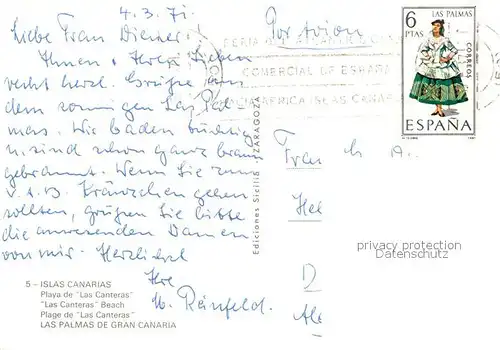 4.3.71.
Liebe Frau Diener!
Ihnen u. Ihren Lieben
recht herzl. Grüße aus
dem sonnigen Las Pal-
mas. Wir baden tüchtig
u. sind schon ganz braun
gebrannt. Wenn Sie zum
Kränzchen gehen
sollten, grüßen Sie bitte
die anwesenden Damen
von mir. Herzlichst
Ihre
Reinfeld.
5 – ISLAS CANARIAS
Playa de "Las Canteras"
"Las Canteras" Beach
Plage de "Las Canteras"
LAS PALMAS DE GRAN CANARIA
Ediciones Sicilia ZARAGOZA
Por Avion
FERIA
COMERCIAL DE ESPAÑA
AFRICA ISLAS CANARIAS
6
PTAS
LAS PALMAS
CORREOS
ESPAÑA
Frau
privacy protection
Datenschutz